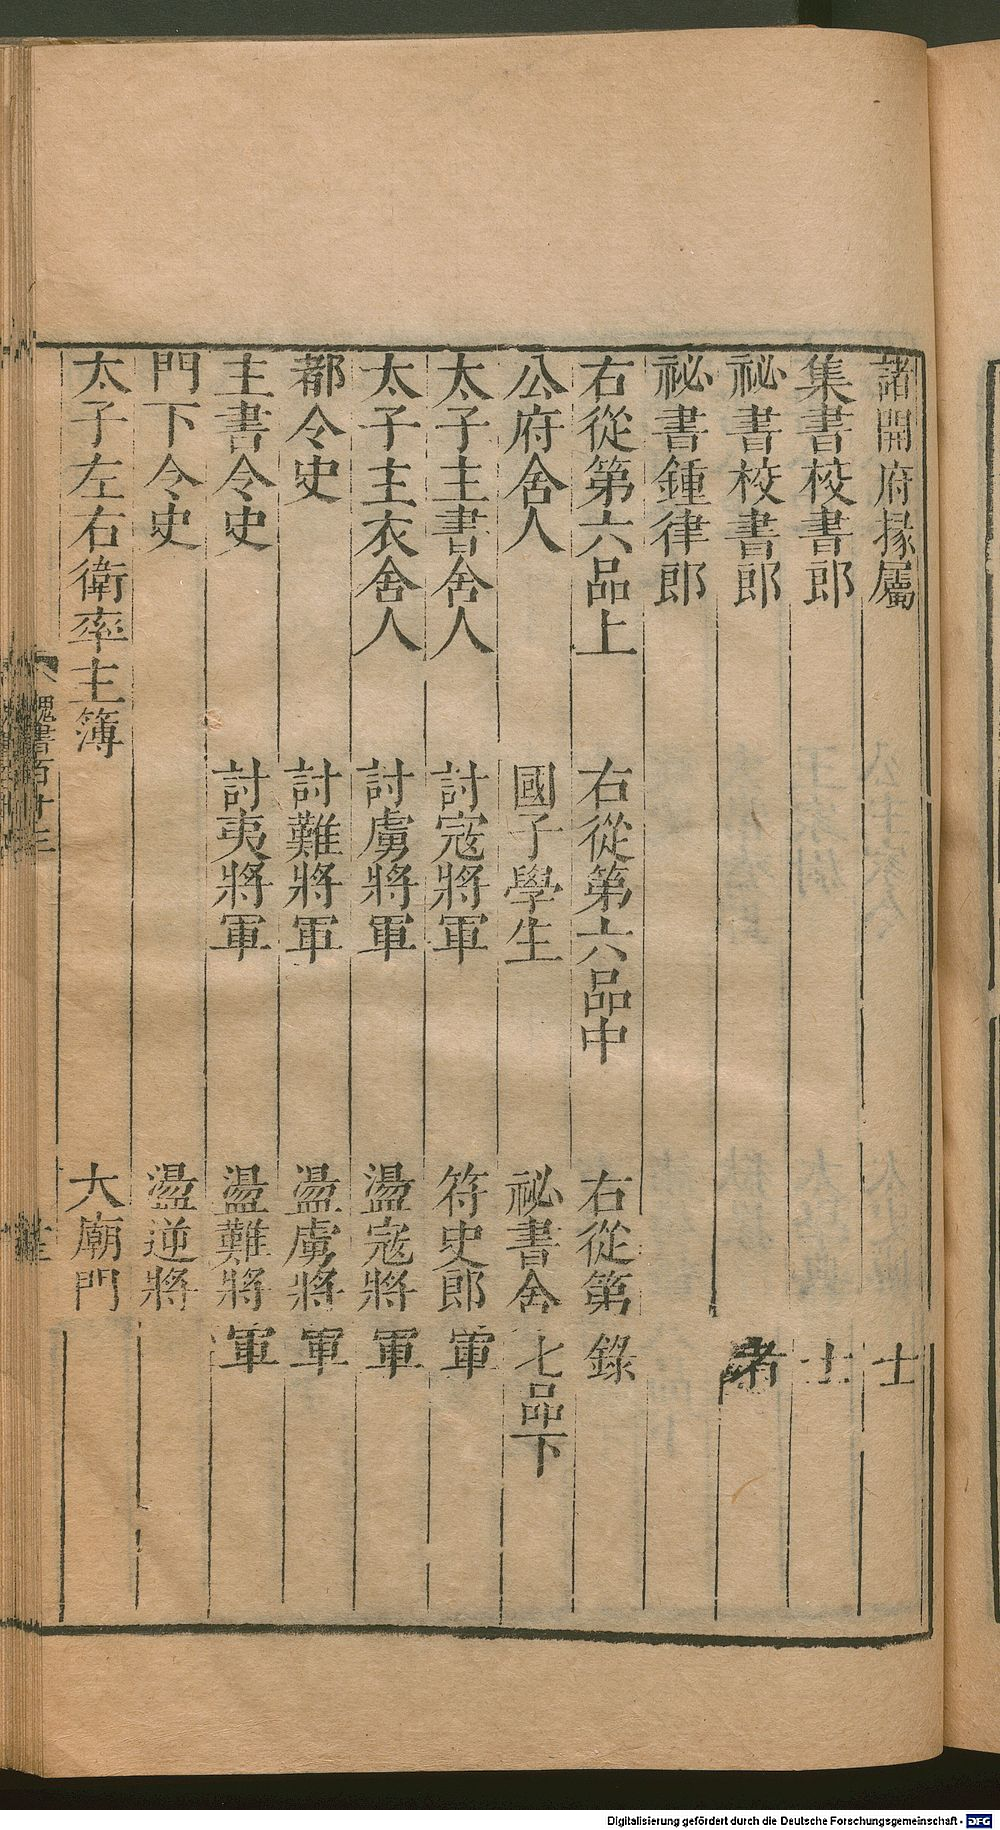 諸開府掾屬 士
集書校書郎 士
祕書校書郎 者
祕書鍾律郎
右從第六品上 右從第六品中 右從第 錄
公府舍人 國子學生 祕書舍 七品下
太子主書舍人 討寇將軍 符史郎 軍
太子主衣舍人 討虜將軍 盪寇將 軍
都令史 討難將軍 盪虜將 軍
主書令史 討夷將軍 盪難將 軍
門下令史 盪逆將
太子左右衛率主簿 大廟門
魏書百十三
Digitalisierung gefördert durch die Deutsche Forschungsgemeinschaft - DFG